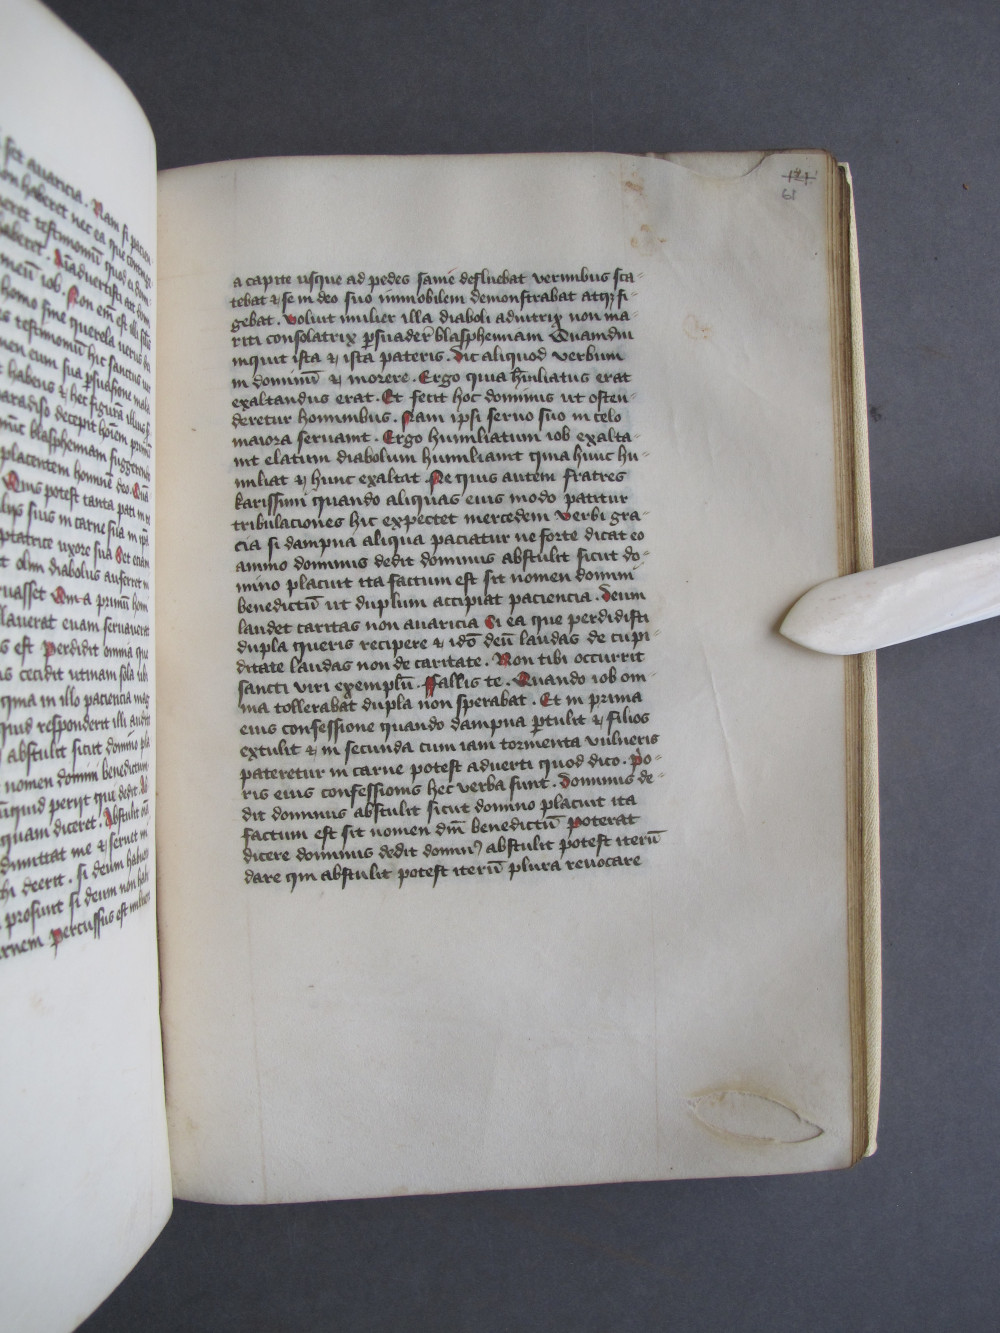 set auaricia . Nam si
non haberet nec ea que
haberet .
homo sine querela uerus dei
testimoniū hic sanctus
cum sua ꝑsuasione mala
habens ⁊ hec figura illius
paradiso decepit
blasphemiam suggerendo
placentem hominē deo .
Quis potest tanta pati in
suis in carne sua in
uxore sua Set etiam
olim diabolus auferret
Qui a primū
seruauerat
est Perdidit omnia que
cecidit utinam sola
quia in illo paciencia mag
quid responderit illi
abstulit sicut domino pla
nomen domini benedictum
perijt que dedit
quam diceret . Abstulit
dimittat me ⁊ seruet
deerit . si deum
prosunt si deum non
percussus est
121
61
a capite usque ad pedes sanie defluebat uermibus sca-
tebat ⁊ se in deo suo inmobilem demonstrabat atqꝫ fi-
gebat . Voluit mulier illa diaboli adiutrix non ma-
riti consolatrix ꝑsuadere blasphemiam Quamdiu
inquit ista ⁊ ista pateris . Dic aliquod uerbum
in dominū ⁊ morere . Ergo quia hūiliatus erat
exaltandus erat . Et fecit hoc dominus ut osten-
deretur hominibus . Nam ipsi seruo suo in celo
maiora seruauit . Ergo humiliatum iob exalta-
uit elatum diabolum humiliauit quia hunc hu-
miliat ⁊ hunc exaltat Ne quis autem fratres
karissimi quando aliquas eius modo patitur
tribulaciones hic expectet mercedem Verbi gra-
cia si dampna aliqua paciatur ne forte dicat eo
animo dominus dedit dominus abstulit sicut do-
mino placuit ita factum est sit nomen domini
benedictū ut duplum accipiat paciencia . Deum
laudet caritas non auaricia Si ea que perdidisti
dupla queris recipere ⁊ idō deū laudas de cupi-
ditate laudas non de caritate . Non tibi occurrit
sancti uiri exemplū . Fallis te . Quando iob om-
nia tollerabat dupla non sperabat . Et in prima
eius confessione quando dampna ꝑtulit ⁊ filios
extulit ⁊ in secunda cum iam tormenta uulneris
pateretur in carne potest aduerti quod dico . Prio-
ris eius confessionis hec uerba sunt . Dominus de-
dit dominus abstulit sicut domino placuit ita
factum est sit nomen dm̄ benedictū Poterat
dicere dominus dedit domin9 abstulit potest iterū
dare qui abstulit potest iterū plura reuocare